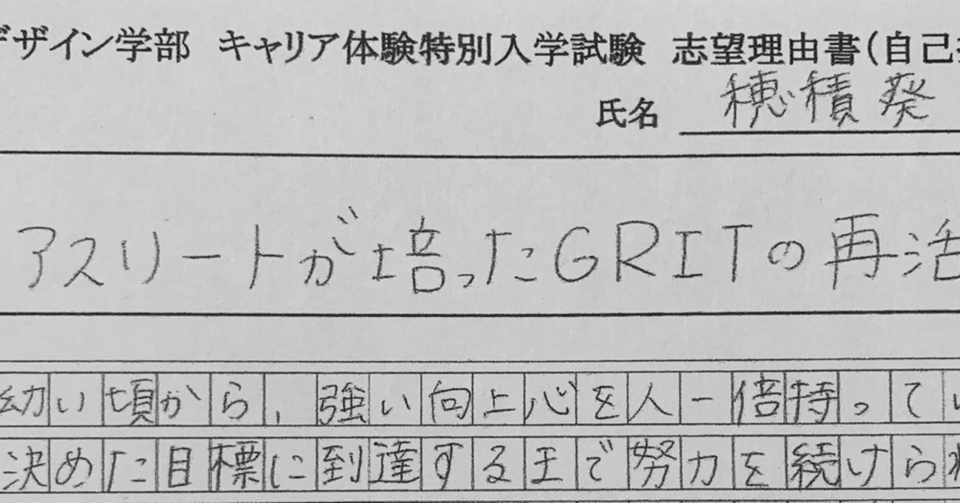 デザイン学部 キャリア体験特別入学試験 志望理由書(自己
氏名 穂積葵
アスリートが培ったGRITの再活
幼い頃から,強い向上心を人一倍持ってい
決めた目標に到達するまで努力を続けられ